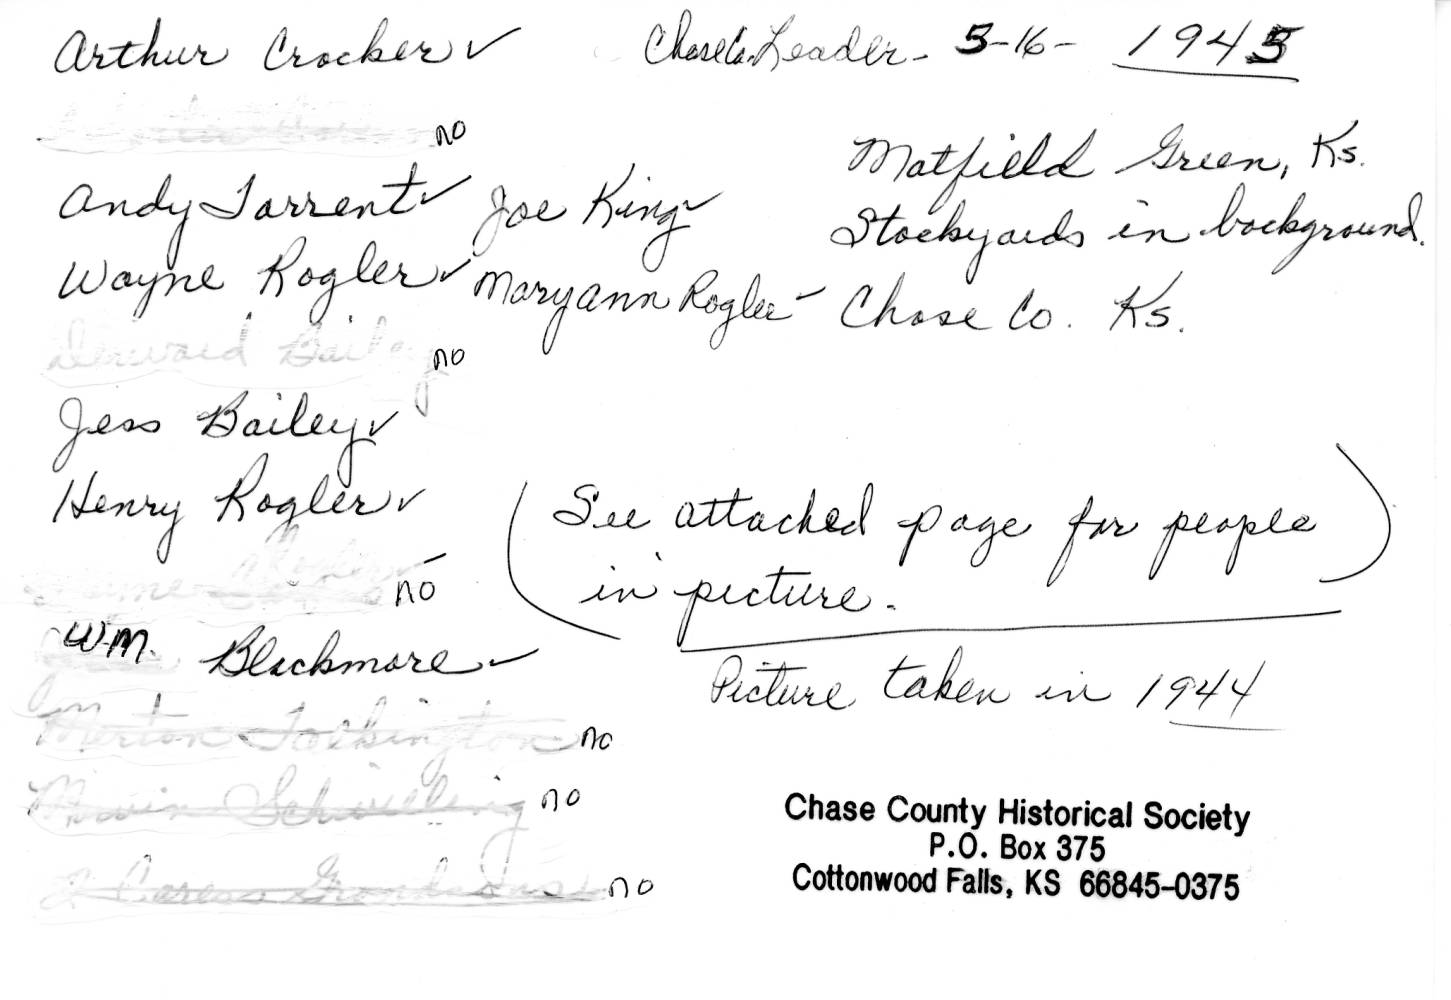 Arthur Crocker ✓
Chase Co. Leader - 5-16- 1945
no
Matfield Green, Ks.
Andy Torrent ✓ Joe King ✓
Stockyards in background.
Wayne Rogler ✓ Maryann Rogler ✓
Chase Co. Ks.
Bailey no
Jess Bailey ✓
Henry Rogler ✓
(See attached page for people
in picture.)
no
Wm. Blackmore ✓
Picture taken in 1944
Merton no
no
no
Chase County Historical Society
P.O. Box 375
Cottonwood Falls, KS 66845-0375